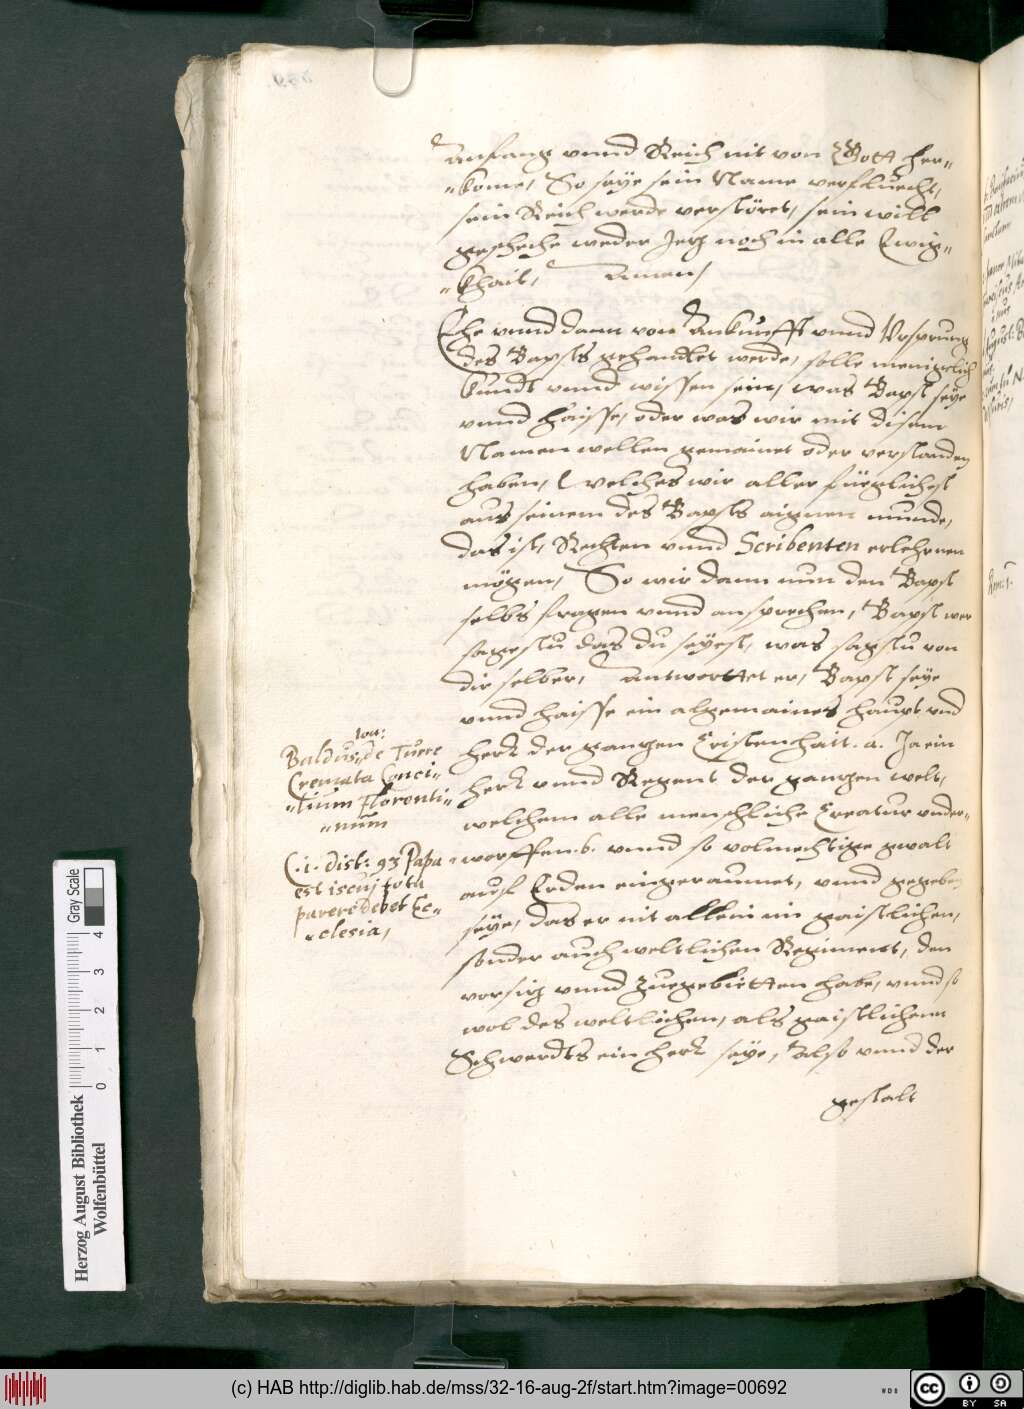 Anfang vnnd Reich nit von Gott her=
=kome, So seye sein Name verfluecht,
sein Reich werde verstöret, sein will
gescheche weder Jetz noch in alle Ewig=
=khait, Amen,
Ehe vnnd dann von Ankunfft vnnd Vrsprung
des Bapsts gehandlet werde, solle menigclich
kundt vnnd wissen sein, was Bapst seye
vnnd haisse, oder was wir mit disem
Namen wellen gemainet oder verstanden
haben, Welches wir aller füeglichest
aus seinem des Bapsts aignen munde,
das ist, Rechten vnnd Scribenten erlehrnen
mögen, So wir dann nun den Bapst
selbs fragen vnnd ansprechen, Bapst wer
sagestu das du seyest, was sagstu von
dir selber, Antwortet er, Bapst seye
vnnd haisse ein algemaines haupt vnd
herr der gantzen Cristenhait. a. Ja ein
herr vnnd Regent der gantzen welt,
welchem alle menschliche Creatur vnder=
=worffen. b. vnnd so volmechtige gwalt
auf Erden eingeraumet, vnnd gegeben
seye, das er nit allein im gaistlichen,
sonder auch weltlichen Regiment, den
vorsitz vnnd zuegebietten habe, vnnd so
wol des weltlichen, als gaistlichenn
Schwerdts ein herr seye, Also vnnd der
gestalt
Ioa:
Baldus: de Turre
Cremata Conci=
=lium Florenti=
=num
C. i. dist: 93 Papa
est is cuj tota
parere debet Ec=
=clesia,
Herzog August Bibliothek
Wolfenbüttel
Gray Scale
0 1 2 3 4
(c) HAB http://diglib.hab.de/mss/32-16-aug-2f/start.htm?image=00692
WDB
cc BY SA